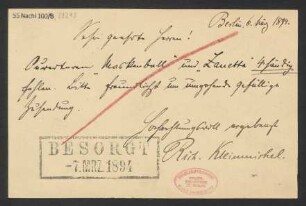 Berlin, 6. März 1894.
Sehr geehrte Herren!
Ouverturen "Maskenball" und "Zanetta" 4händig
fehlen. Bitte freundlichst um umgehende gefällige
Zusendung.
Hochachtungsvoll ergebenst
Rich. Kleinmichel.
BESORGT
-7.MRZ.1894